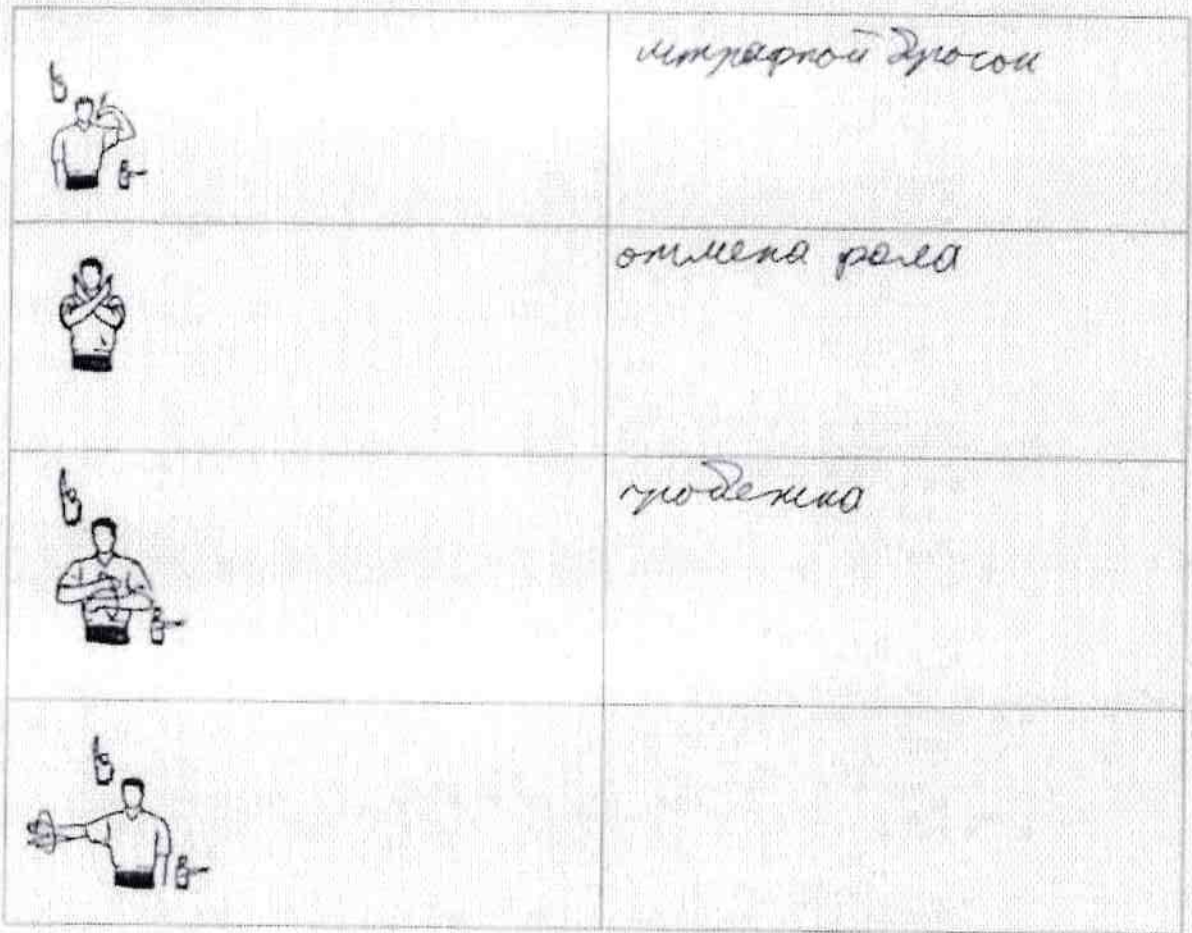 штрафной бросок
отмена рола
пробежка